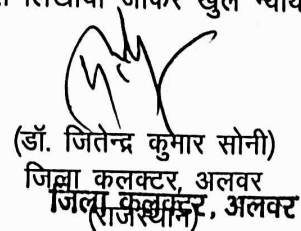 लिखाया जाकर खुले
(डॉ. जितेन्द्र कुमार सोनी)
जिला कलक्टर, अलवर
जिला कलक्टर, अलवर
(राजस्थान)